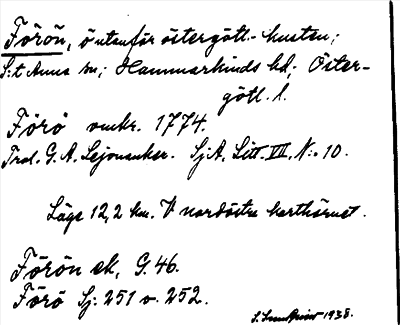 Förön, ö utanför östergötl.-kusten;
S:t Anna sn; Hammarkinds hd; Öster-
götl. l.
Förö omkr. 1774.
Trol. G. A. Lejonanker. Sj:A, Litt. VII, N:o 10.
Läge 12,2 km. V nordöstra karthörnet.
Förön ek, G. 46.
Förö Sj: 251 o. 252.
1938.